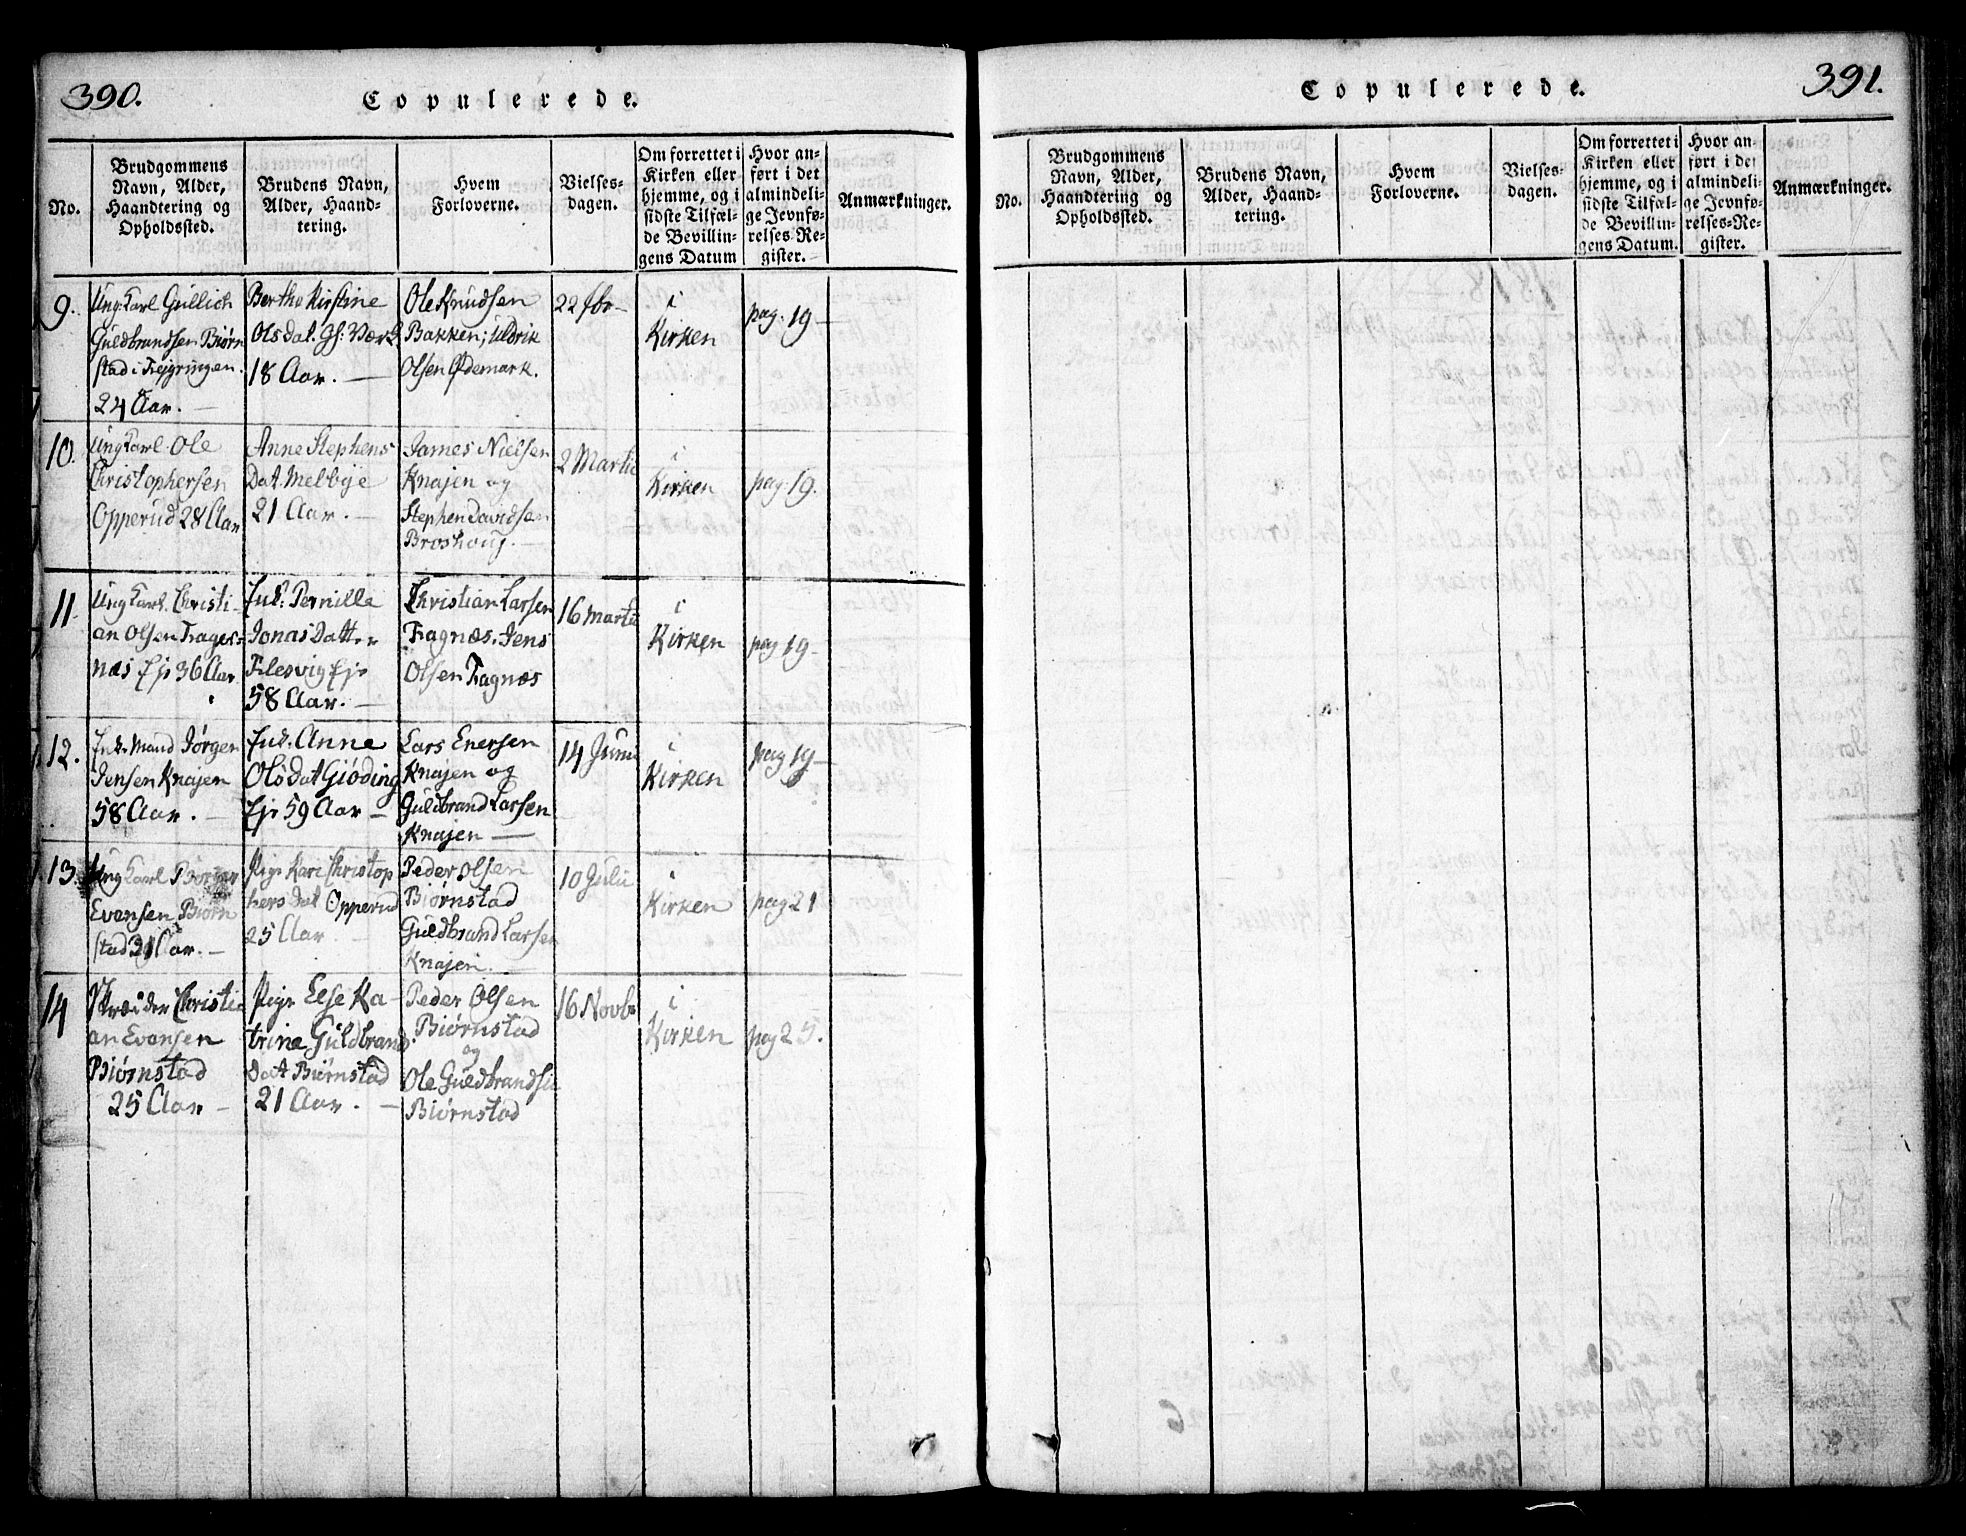 390.
Copulerede.
No.
Brudgommens
Navn, Alder,
Haandtering og
Opholdssted.
Brudens Navn,
Alder, Haand-
tering.
Hvem
Forloverne.
Vielses-
dagen.
Om forrettet i
Kirken eller
hjemme, og i
sidste Tilfæl-
de Bevillin-
gens Datum
Hvor an-
ført i det
almindeli-
ge Jevnfø-
relses-Re-
gister.
Anmærkninger.
9.
Ung Karl Gullich
Guldbrandsen Biørn
stad i
24 Aar.
Berthe Kirstine
Olsdat.
18 Aar.
Ole Knudsen
Bakken; Uldrik
Olsen Ødemark.
22
i
Kirken
pag. 19
10.
Ung Karl Ole
Christophersen
Opperud 28 Aar
Anne Stephens
Dat. Melbye
21 Aar.
James Nielsen
Knajen og
Stephen Davidsen
Broshoug.
2 Martii
i
Kirken
pag. 19.
11.
Ung Karl Christi-
an Olsen Trages-
næs Ejs 36 Aar
Enk: Pernilla
Jonas Datt..
Flesvig Ejs
58 Aar.
Christian Larsen
Tragnæs. Jens
Olsen Tragnæs
16 Martii
i
Kirken
pag 19
12.
Enk. Mand Jørgen
Jensen Knajen
58 Aar.
Enk. Anne
Olsdat Giøding
Ejs 59 Aar
Lars Enersen
Knajen og
Guldbrand Larsen
Knajen
14 Juni
i
Kirken
pag 19
13.
Ung Karl
Evensen Biørn
stad Aar.
Pige Kari Christop
hers dat Opperud
25 Aar
Peder Olsen
Biørnstad
Guldbrand Larsen
Knajen.
10 Julii
i
Kirken
pag 21
14
Christi
an Evensen
Biørnstad
25 Aar
Pige Else Ka-
trine Guldbrand
dat Biørnstad
21 Aar.
Peder Olsen
Biørnstad
og
Ole Guldbrandsen
Biørnstad
16 Novbr
i
Kirken
pag 25.
Copulerede.
391.
No.
Brudgommens
Navn, Alder,
Haandtering og
Opholdssted.
Brudens Navn,
Alder, Haand-
tering.
Hvem
Forloverne.
Vielses-
dagen.
Om forrettet i
Kirken eller
hjemme, og i
sidste Tilfæl-
de Bevillin-
gens Datum.
Hvor an-
ført i det
almindeli-
ge Jevnfø-
relses-Re-
gister.
Anmærkninger.